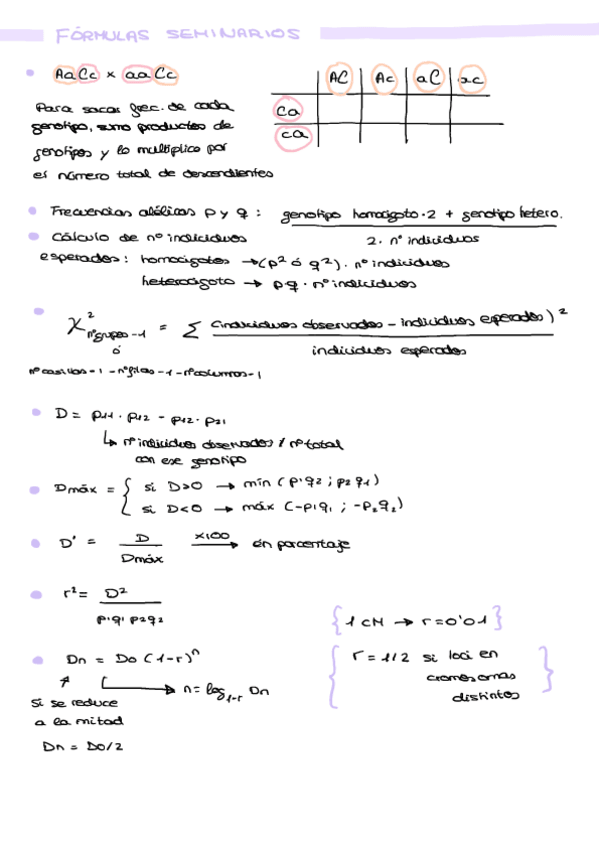 FÓRMULAS SEMINARIOS
AaCc x aaCc
AC Ac aC xc
Ca
ca
Para sacar frec. de cada
genotipo, sumo productos de
genotipos y lo multiplico por
el número total de descendientes
Frecuencias alélicas p y q : genotipo homocigoto · 2 + genotipo hetero.
2. nº individuos
Cálculo de nº individuos
esperados : homocigotos → (p² ó q²) . nº individuos
heterocigoto → pq · nº individuos
χ² nºgrupos -1 = Σ (individuos observados - individuos esperados)²
individuos esperados
ó
nº casillas - 1 - nºfilas - 1 - nºcolumnas - 1
D = p11 . p12 - p12 . p21
↳ nº individuos observados / nº total
con ese genotipo
Dmáx = { si D>0 → mín (p1q2 ; p2q1)
si D<0 → máx (-p1q1 ; -p2q2)
D' = D
Dmáx
x100 → en porcentaje
r² = D²
p1q1 p2q2
{ 1 cM → r = 0'01 }
Dn = Do (1-r)ⁿ
n = log1-r Dn
{ r = 1/2 si loci en
cromosomas
distintos }
si se reduce
a la mitad
Dn = Do/2